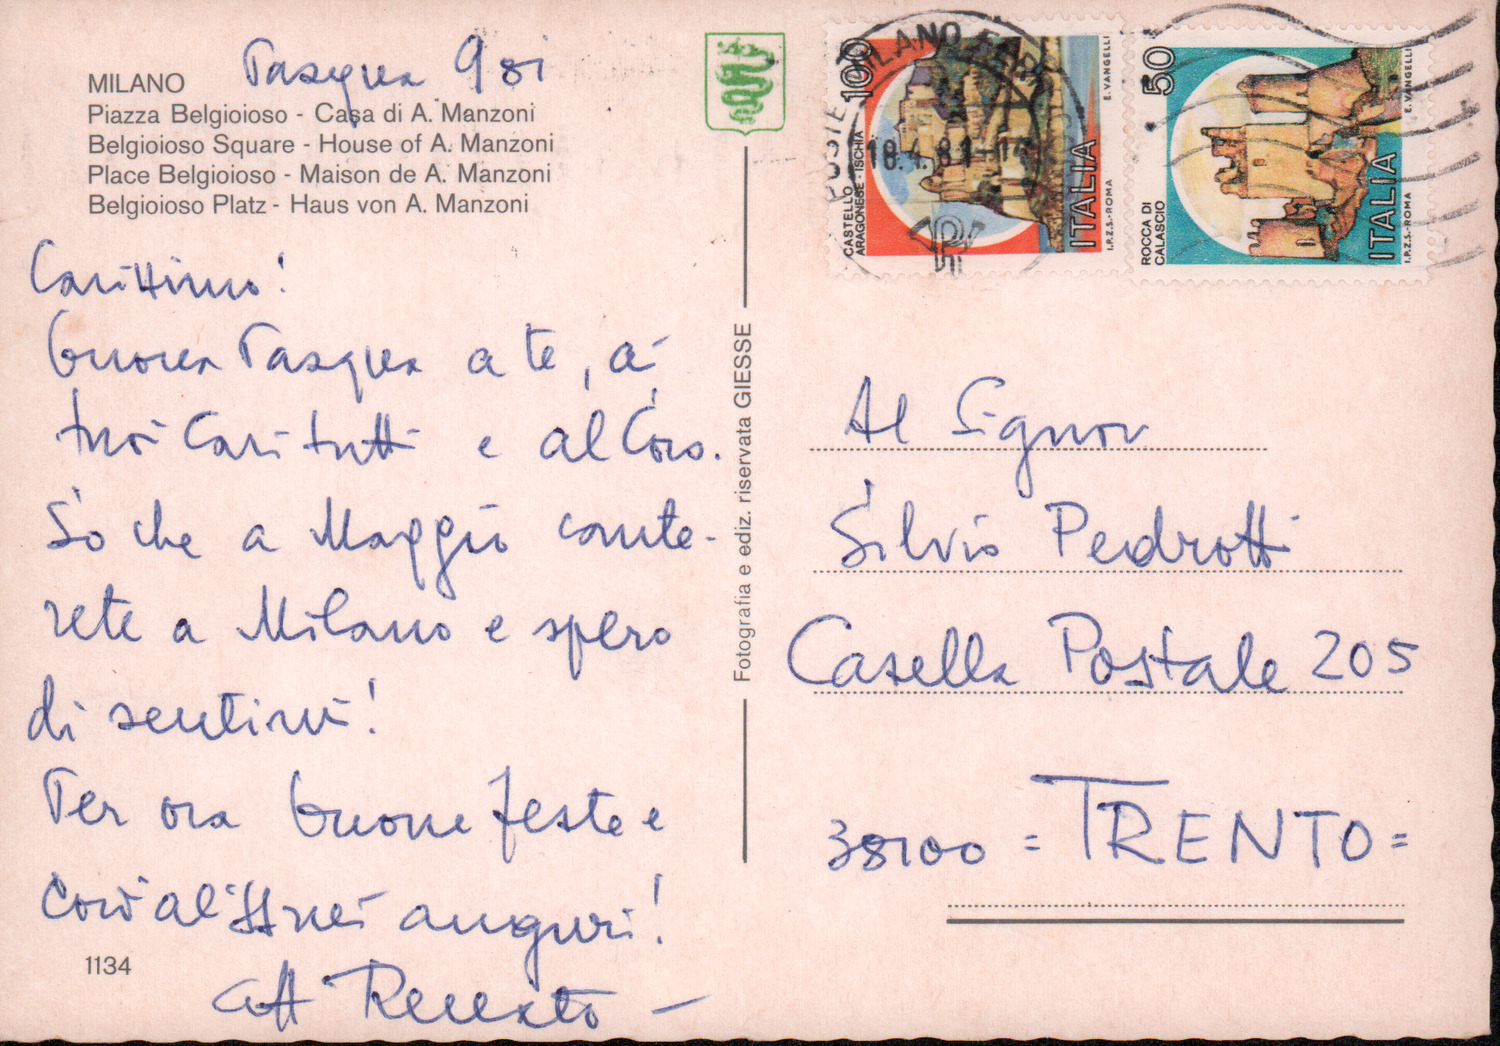 Pasqua 981
MILANO
Piazza Belgioioso - Casa di A. Manzoni
Belgioioso Square - House of A. Manzoni
Place Belgioioso - Maison de A. Manzoni
Belgioioso Platz - Haus von A. Manzoni
Carissimo!
buona Pasqua a te, ai
tuoi Cari tutti e al Coro.
So che a Maggio cante-
rete a Milano e spero
di sentirvi!
Per ora buone feste e
Cordialissimi auguri!
aff Renato
1134
Fotografia e ediz. riservata GIESSE
POSTE MILANO
18.4.81
100
CASTELLO
ARAGONESE - ISCHIA
ITALIA
E. VANGELLI
I.P.Z.S.-ROMA
50
ROCCA DI
CALASCIO
ITALIA
E. VANGELLI
I.P.Z.S.-ROMA
Al Signor
Silvio Pedrotti
Casella Postale 205
38100 = TRENTO =